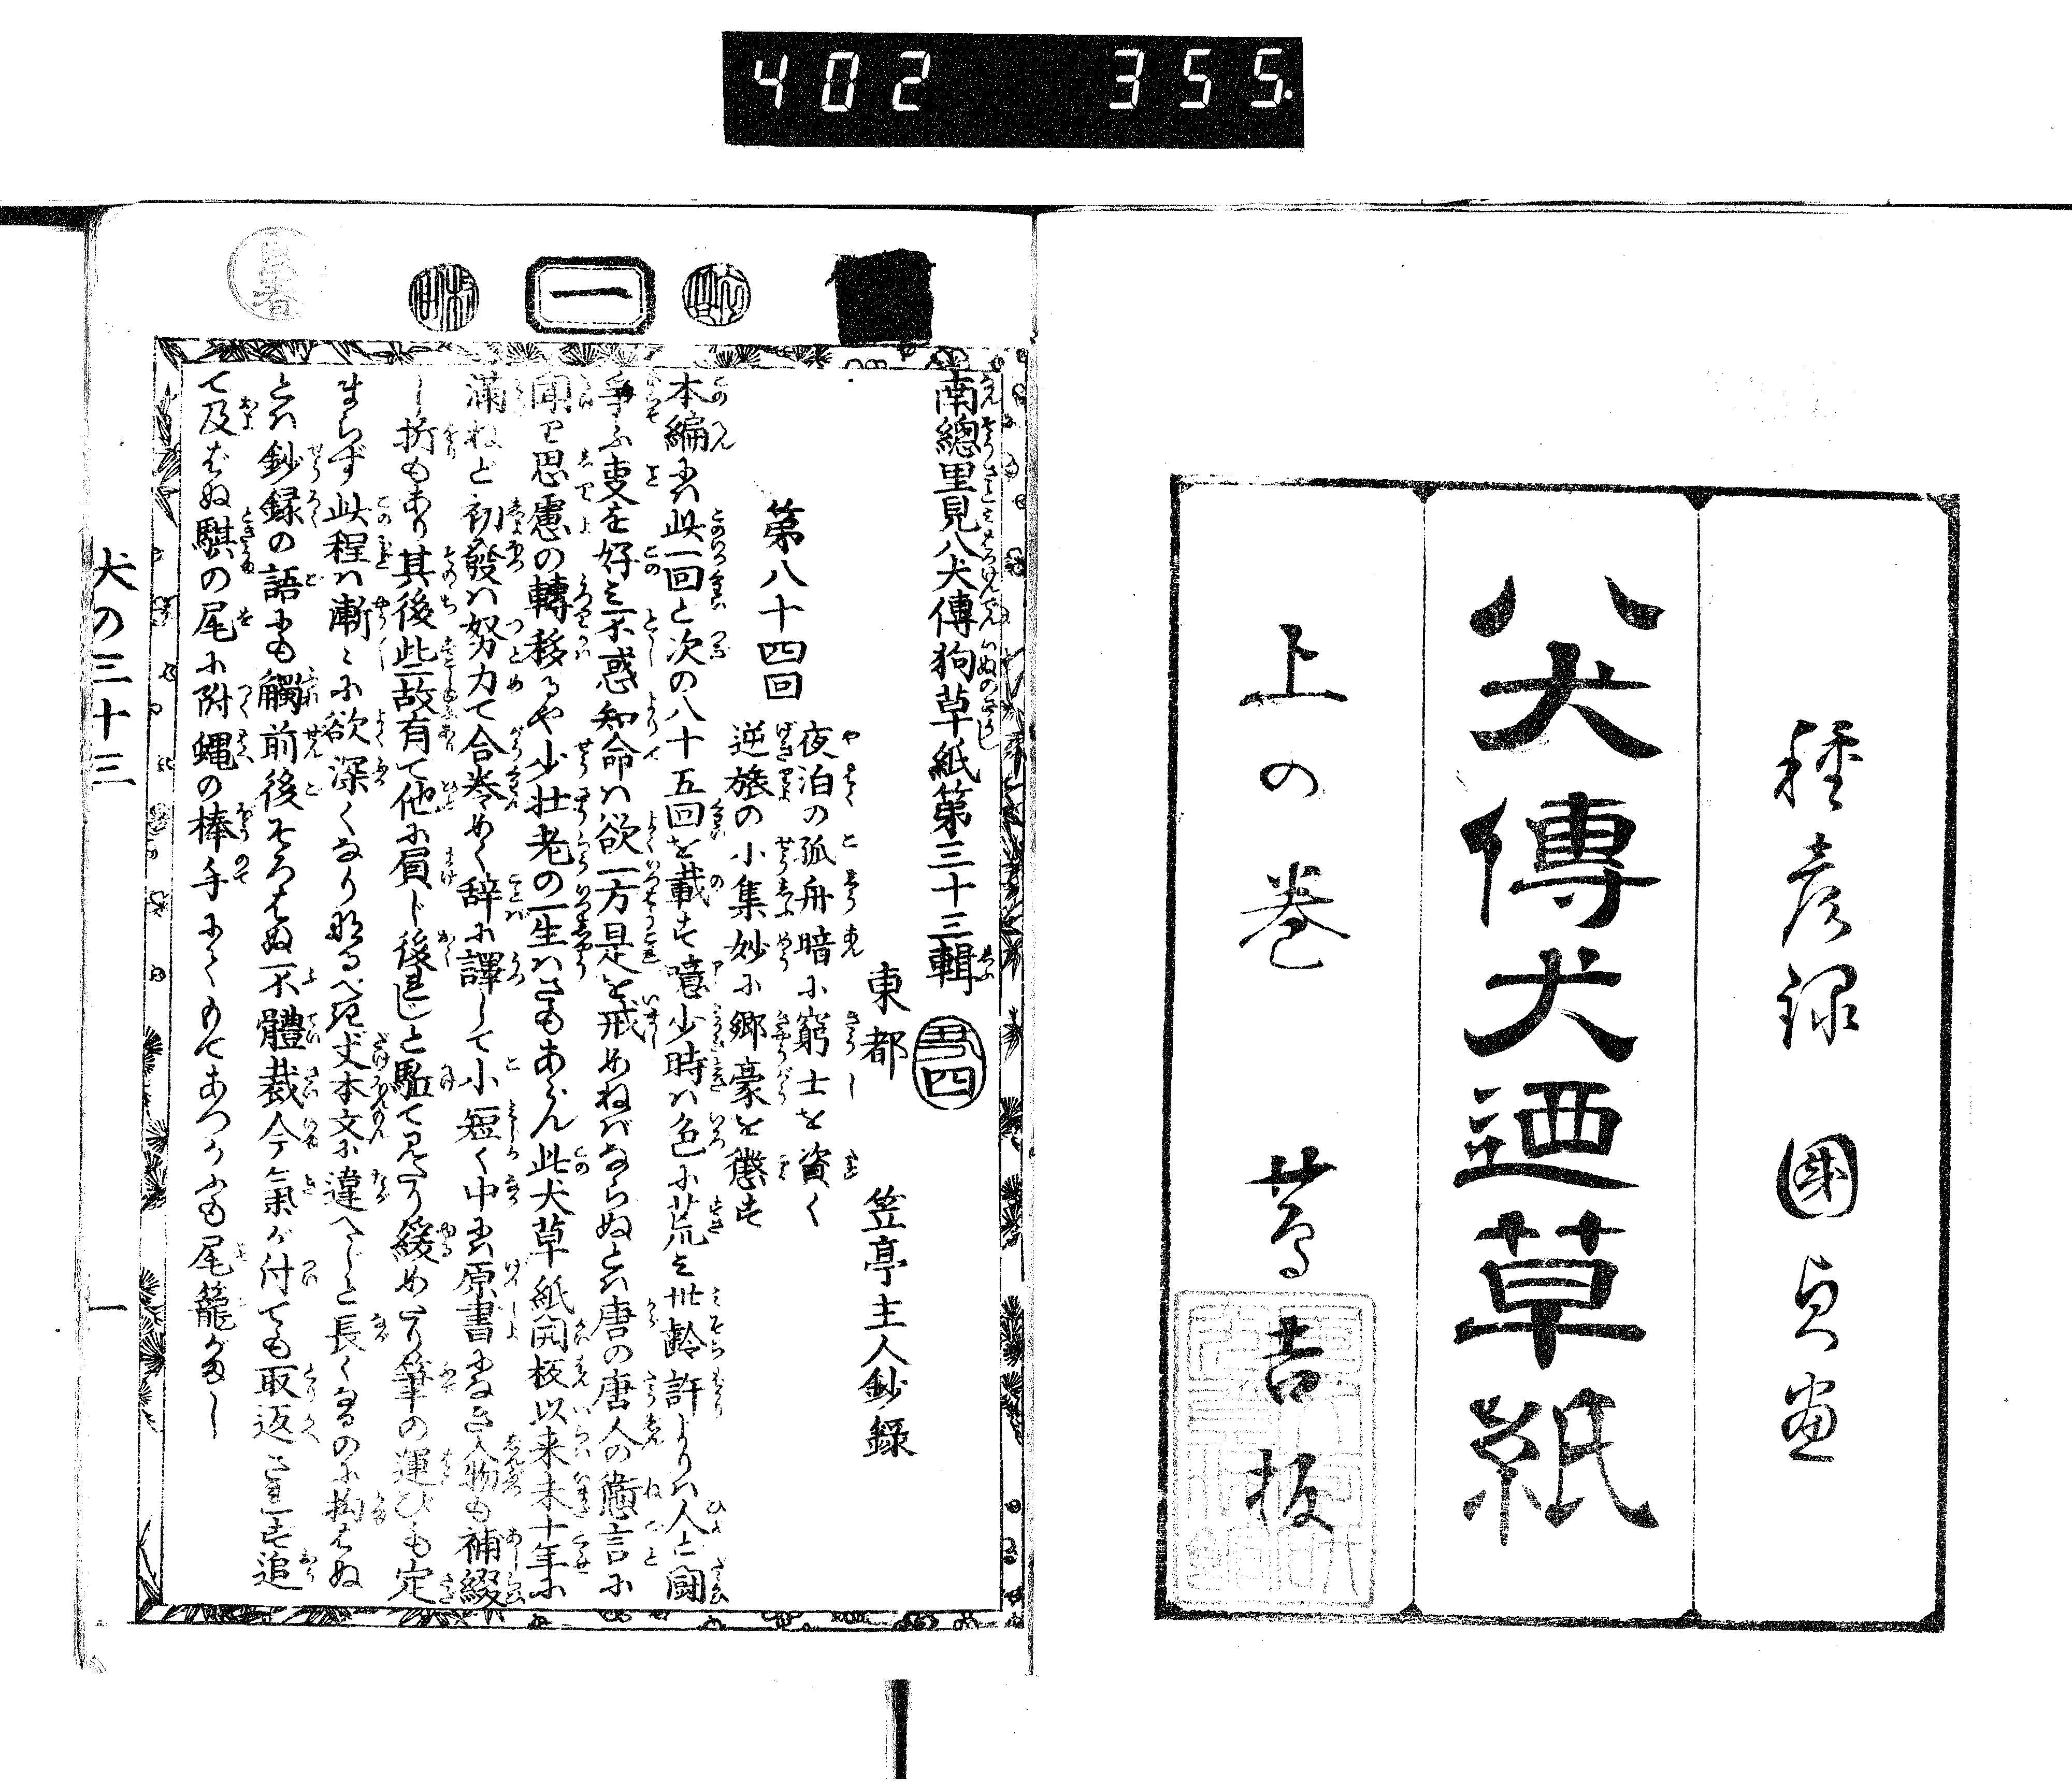 402 355.
種彦録 國貞畫
八犬傳犬迺草紙
上の巻 蔦吉板
一
南總里見八犬傳狗草紙第三十三輯
東都 笠亭主人鈔録
第八十四回
夜泊の孤舟暗に窮士を資く
逆旅の小集妙に郷豪を懲す
本編には此一回と次の八十五回を載す噫少時は色に荒み卅齢許よりは人と闘
争ふ叓を好み不惑知命は欲一方是を戒めねばならぬとは唐の唐人の寱言に
聞で思慮の轉移るや少壮老の一生はさもあらん此犬草紙開板以来未十年に
滿ねど初發は努力て合巻めく辞に譯して小短く中には原書になき人物も補綴
し折もあり其後此二故有て他に屓じ後じと駈て見たり緩めたり筆の運びも定
まらず此程は漸々に欲深くなり成るべきだけ本文に違へじと長くなるのに拘はぬ
とは鈔録の語にも觸前後そろはぬ不體裁今氣が付ても取返されず追
て及ばぬ騏の尾に附蝿の棒手にくくもてあつかふも尾籠がまし
犬の三十三
一